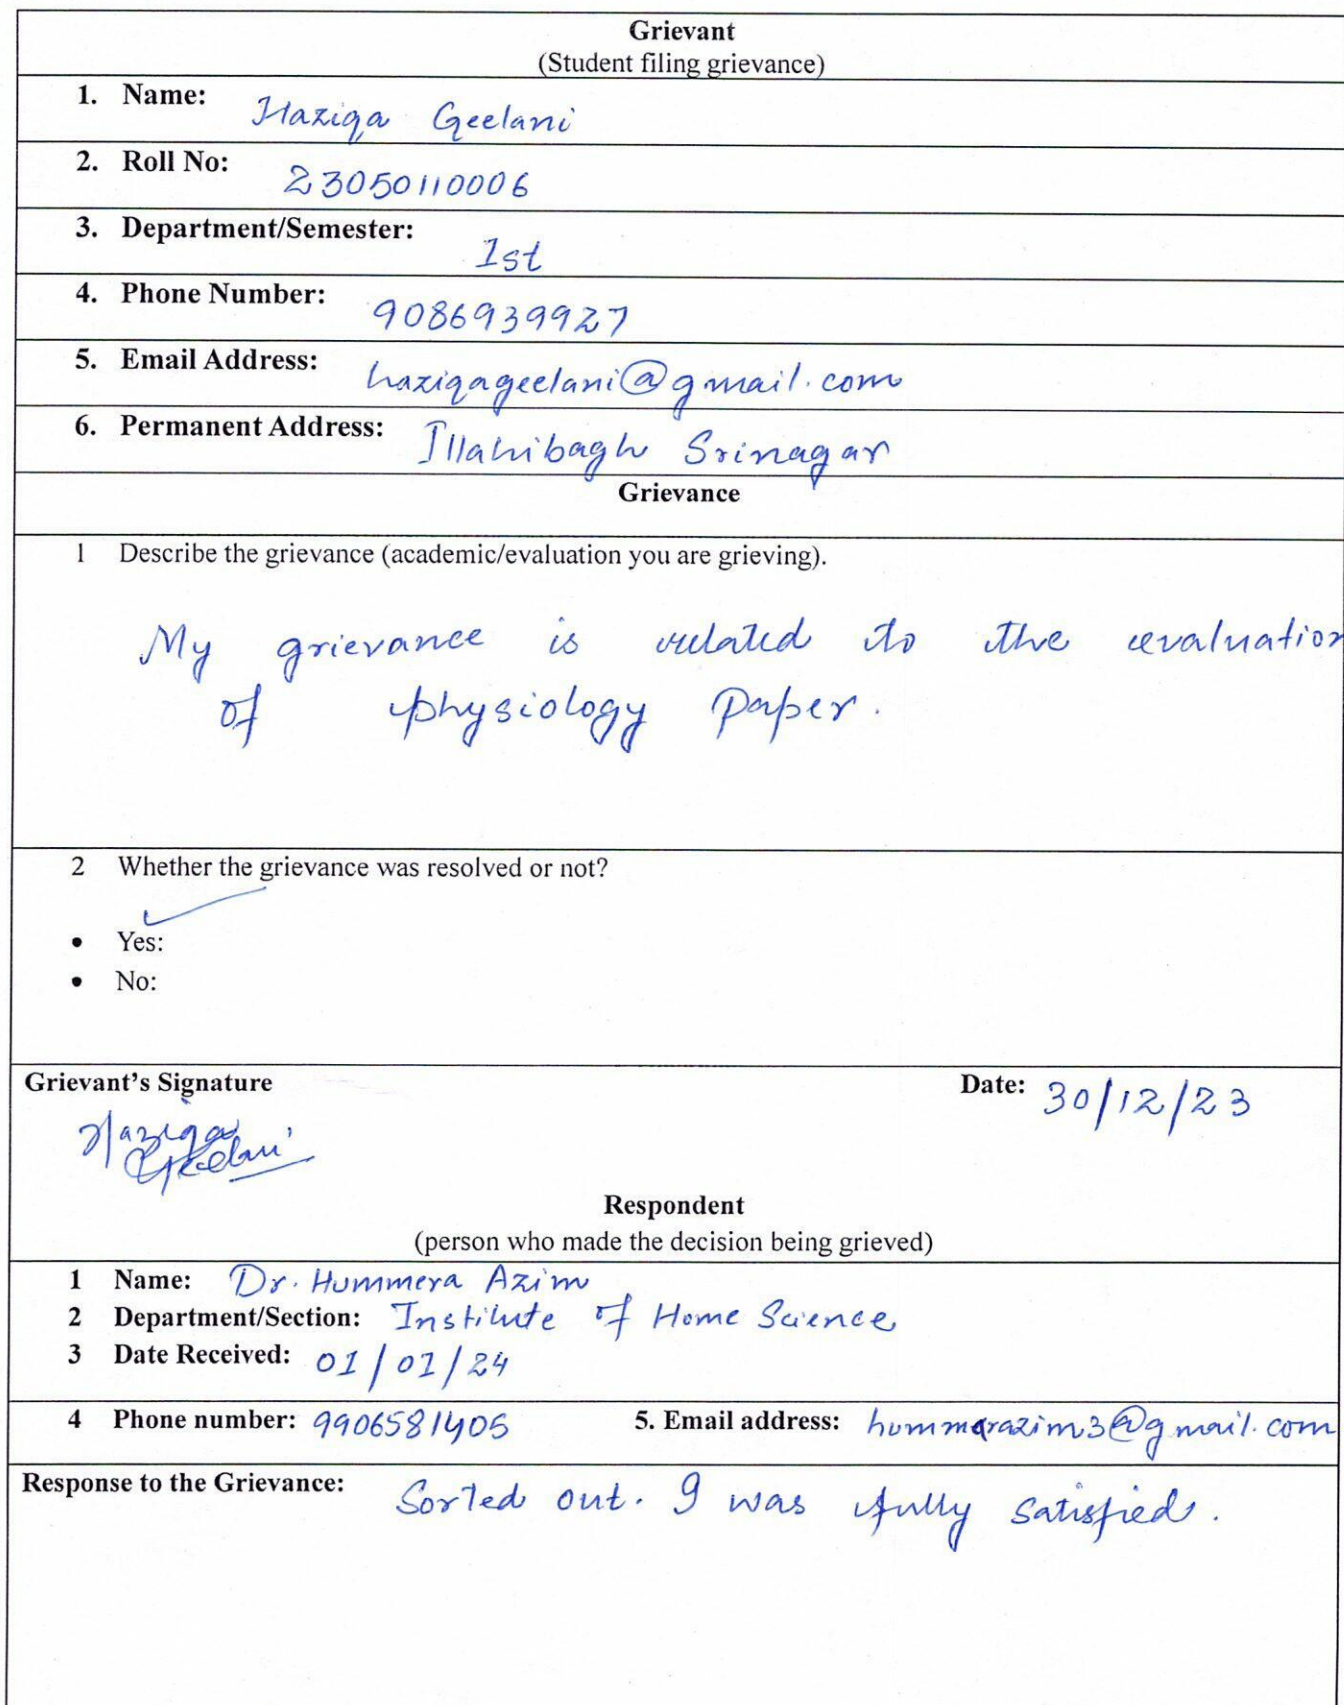 Grievant
(Student filing grievance)
1. Name: Haziqa Geelani
2. Roll No: 23050110006
3. Department/Semester: 1st
4. Phone Number: 9086939927
5. Email Address: haziqageelani@gmail.com
6. Permanent Address: Illahibagh Srinagar
Grievance
1 Describe the grievance (academic/evaluation you are grieving).
My grievance is related to the evaluation
of physiology paper.
2 Whether the grievance was resolved or not?
• Yes:
• No:
Grievant's Signature Date: 30/12/23
Haziqa
Geelani
Respondent
(person who made the decision being grieved)
1 Name: Dr. Hummera Azim
2 Department/Section: Institute of Home Science
3 Date Received: 01/01/24
4 Phone number: 9906581405 5. Email address: hummerazim3@gmail.com
Response to the Grievance: Sorted out. I was fully satisfied.